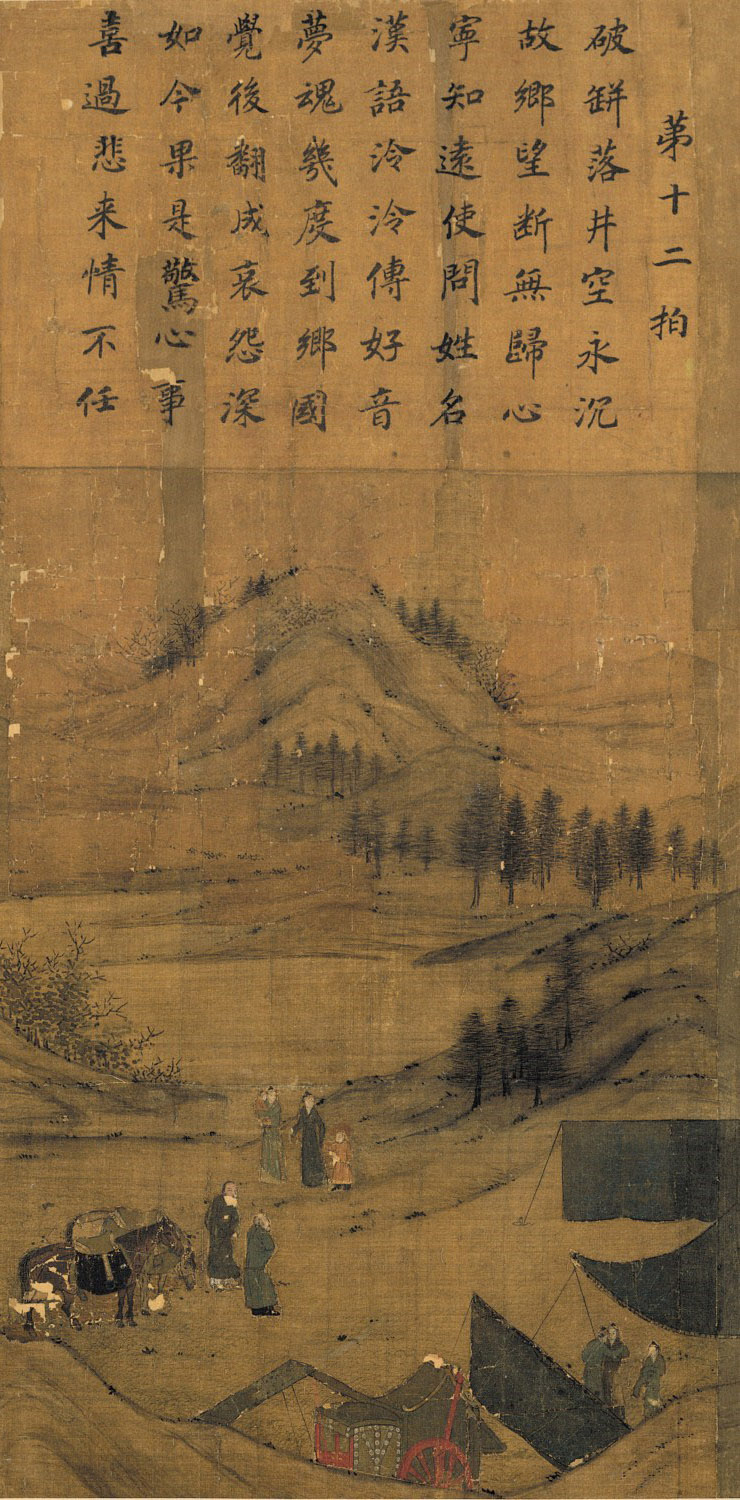 第十二拍
破缾落井空永沉
故鄉望断無歸心
寧知遠使問姓名
漢語泠泠傳好音
夢魂幾度到鄉國
覺後翻成哀怨深
如今果是驚心事
喜過悲来情不任